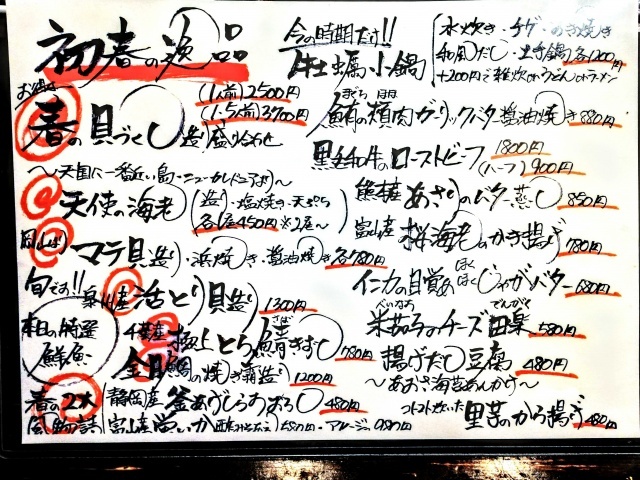 初春の逸品
お得
春の貝づくし造り盛り合わせ
(1人前)2500円
(1.5人前)3700円
〜天国に一番近い島・ニューカレドニア〜
天使の海老(造り・塩焼き・天ぷら
各1尾450円※2尾〜
岡山
マテ貝 造り・浜焼き・醤油焼き 各780円
旬です!!
泉州産 活とり貝造り 1300円
本日の特選
鮮魚
極上とろ鯖きずし 780円
金目鯛の焼き霜造り 1200円
春の2大
風物詩
静岡産 釜あげしらすおろし 480円
富山産 580円・アヒージョ 980円
今の時期だけ!!
牡蠣小鍋
水炊き・チゲ・すき焼き
和風だし・土手鍋 各1200円
+200円で雑炊orうどんorラーメン
鮪の頬肉ガーリックバター醤油焼き 880円
黒毛和牛のローストビーフ 1800円
(ハーフ)900円
熊本産 あさりのバター蒸し 850円
富山産 桜海老のかき揚げ 780円
インカの目覚め ほくほくじゃがバター 680円
米茄子のチーズ田楽 580円
揚げだし豆腐 480円
〜あおさ海苔あんかけ〜
コトコト炊いた 里芋のから揚げ 480円